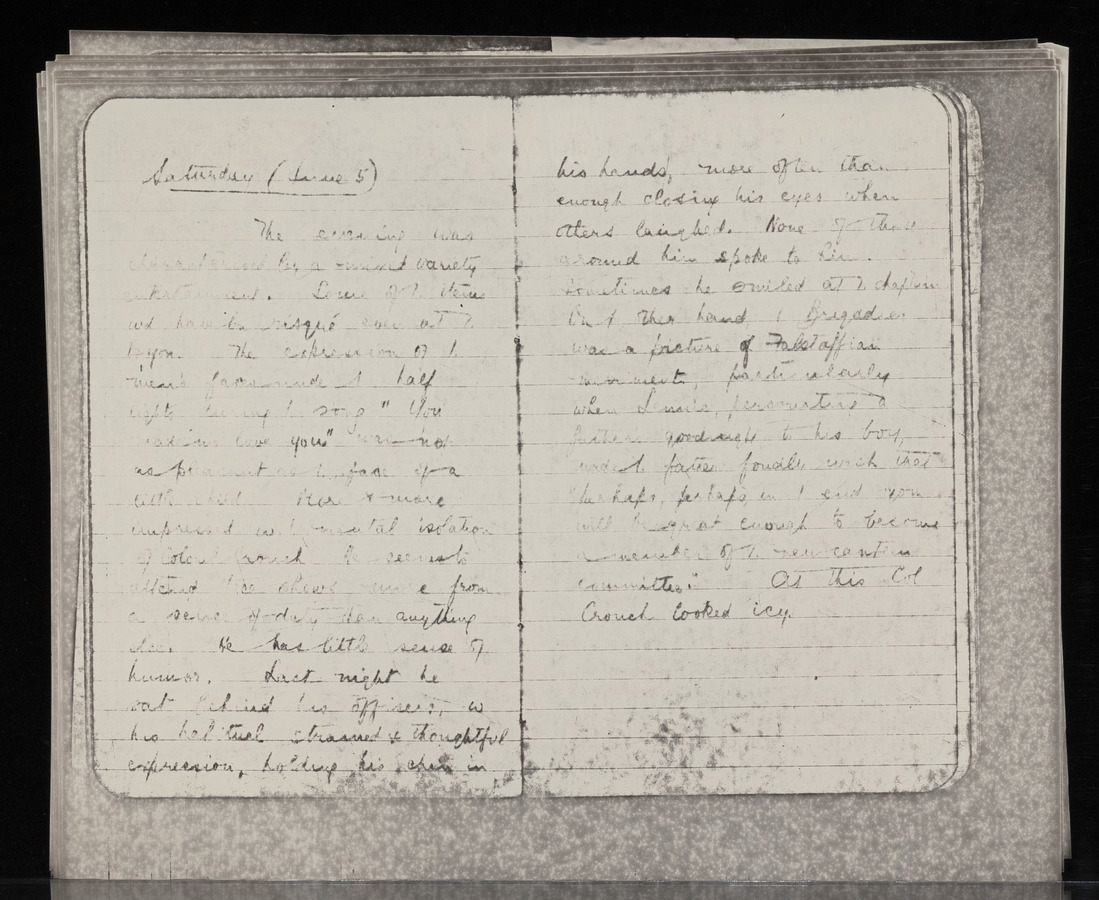 Saturday (June 5)
The evening was
characterised by a mixed variety
entertainment. Some of t. items
wd have bn risqué even at t.
The expression of t.
men's faces made t. half
lights during t. song " You
made me love you" was not
as as t. of a
little child More & more
impressed w t. mental isolation
of Colonel Crouch He seems to
attend these shows more from
a sense of duty than anything
else. He has little sense of
humor. Last night he
sat behind his officers, w
his habitual strained & thoughtful
expression, holding his chin in
his hands, more often than
enough closing his eyes when
others laughed. None of those
around him spoke to him.
Sometimes he smiled at t. chaplain
On t other hand, t Brigadier
was a picture of Falstaffian
merriment, particularly
when personating a
father's goodnight to his boy,
made t. father fondly wish that
"Perhaps, perhaps in t end
will be great enough to become
a member of t. new canteen
committee." At this Col
Crouch looked icy.